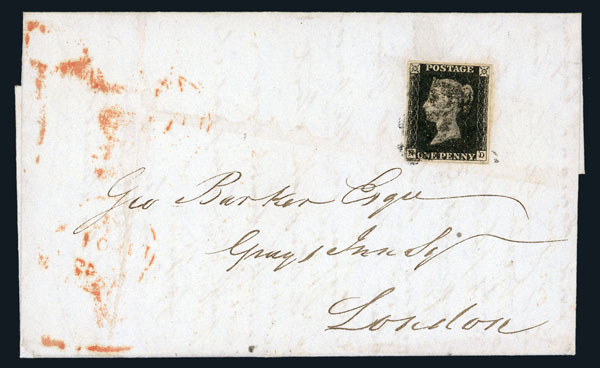 POSTAGE
N D
ONE PENNY
Geo Barker Esqre
Grays Inn Sq
London